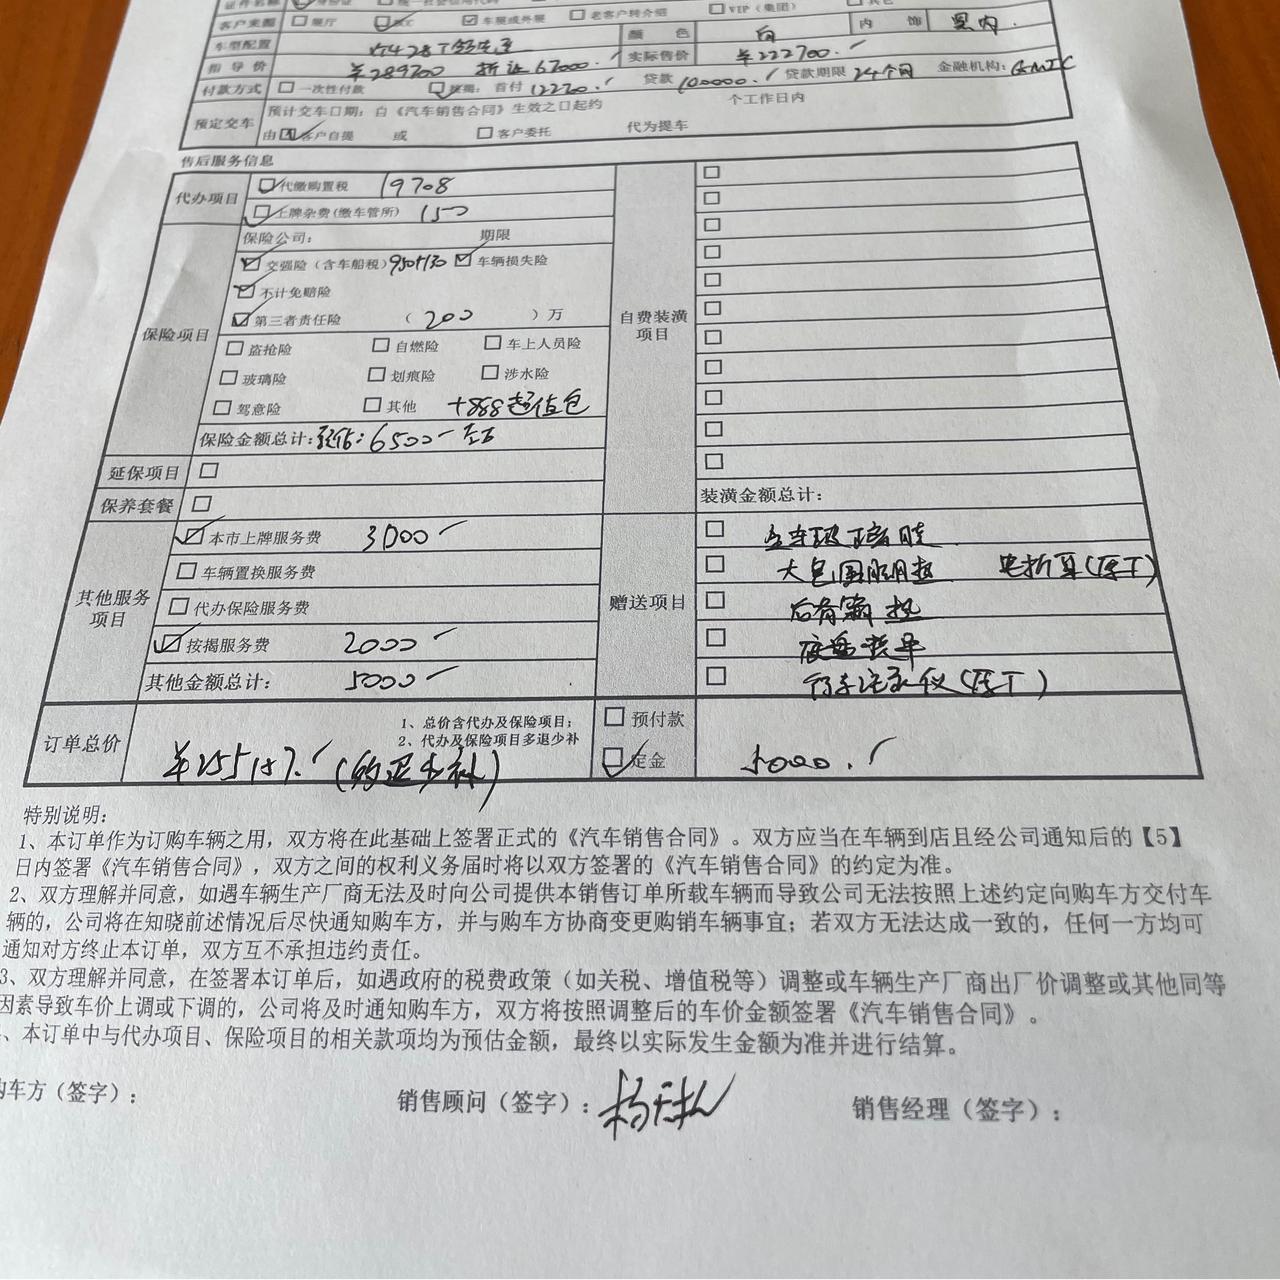 客户来源 □ 展厅 □ DCC □ 车展或外展 □ 老客户转介绍 □ VIP（集团）
车型配置 颜 色 白 内 饰 黑内.
指 导 价 ￥289700 折让 67000. 实际售价 ￥222700.
付款方式 □ 一次性付款 □ 按揭：首付 122700. 贷款 100000. 贷款期限 24个月 金融机构：GMAC
预定交车 预计交车日期：自《汽车销售合同》生效之日起约 个工作日内
由 □ 客户自提 或 □ 客户委托 代为提车
售后服务信息
代办项目 □ 代缴购置税 19708
□ 上牌杂费(缴车管所) 150
保险项目 保险公司： 期限
□ 交强险（含车船税）950+130 □ 车辆损失险
□ 不计免赔险
□ 第三者责任险 （ 200 ）万
□ 盗抢险 □ 自燃险 □ 车上人员险
□ 玻璃险 □ 划痕险 □ 涉水险
□ 驾意险 □ 其他 +888超值包
保险金额总计：预估：6500 左右
延保项目 □
保养套餐 □
自费装潢项目
装潢金额总计：
其他服务项目 □ 本市上牌服务费 3000
□ 车辆置换服务费
□ 代办保险服务费
□ 按揭服务费 2000
其他金额总计： 5000
赠送项目
□ 大包围 电折耳(原厂)
□ 底盘装甲
□ 行车记录仪(原厂)
订单总价 1、总价含代办及保险项目；
2、代办及保险项目多退少补
￥255157. (多退少补)
□ 预付款
□ 定金 5000.
特别说明：
1、本订单作为订购车辆之用，双方将在此基础上签署正式的《汽车销售合同》。双方应当在车辆到店且经公司通知后的【5】
日内签署《汽车销售合同》，双方之间的权利义务届时将以双方签署的《汽车销售合同》的约定为准。
2、双方理解并同意，如遇车辆生产厂商无法及时向公司提供本销售订单所载车辆而导致公司无法按照上述约定向购车方交付车
辆的，公司将在知晓前述情况后尽快通知购车方，并与购车方协商变更购销车辆事宜；若双方无法达成一致的，任何一方均可
通知对方终止本订单，双方互不承担违约责任。
3、双方理解并同意，在签署本订单后，如遇政府的税费政策（如关税、增值税等）调整或车辆生产厂商出厂价调整或其他同等
因素导致车价上调或下调的，公司将及时通知购车方，双方将按照调整后的车价金额签署《汽车销售合同》。
、本订单中与代办项目、保险项目的相关款项均为预估金额，最终以实际发生金额为准并进行结算。
购车方（签字）： 销售顾问（签字）： 销售经理（签字）：